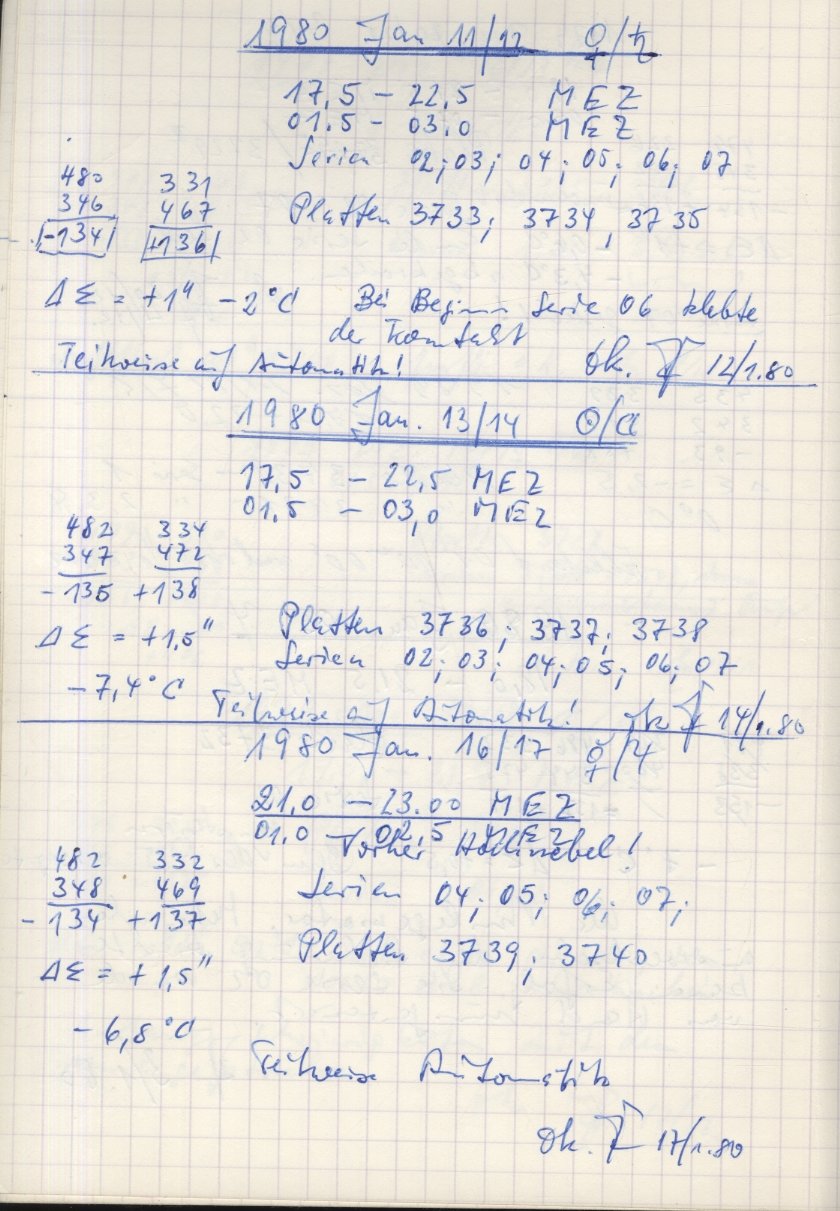 1980 Jan 11/12 ♀/♄
17,5 – 22,5 MEZ
01.5 – 03,0 MEZ
Serien 02; 03; 04; 05; 06; 07
480 331
346 467
-134 +136
Platten 3733; 3734, 3735
ΔΣ = +1" -2°C Bei Beginn Serie 06 klebte
der Kontakt
Teilweise auf Automatik! Ok. 12/1.80
1980 Jan. 13/14 ☉/☾
17,5 – 22,5 MEZ
01,5 – 03,0 MEZ
482 334
347 472
-135 +138
ΔΣ = +1,5"
Platten 3736; 3737; 3738
Serien 02; 03; 04; 05; 06; 07
-7,4°C
Teilweise auf Automatik! ok 14/1.80
1980 Jan. 16/17 ☿/♃
21,0 – 23.00 MEZ
01,0 02,5 MEZ
Vorher Hochnebel!
482 332
348 469
-134 +137
Serien 04; 05; 06; 07;
Platten 3739; 3740
ΔΣ = +1,5"
-6,8°C
Teilweise Automatik
Ok. 17/1.80